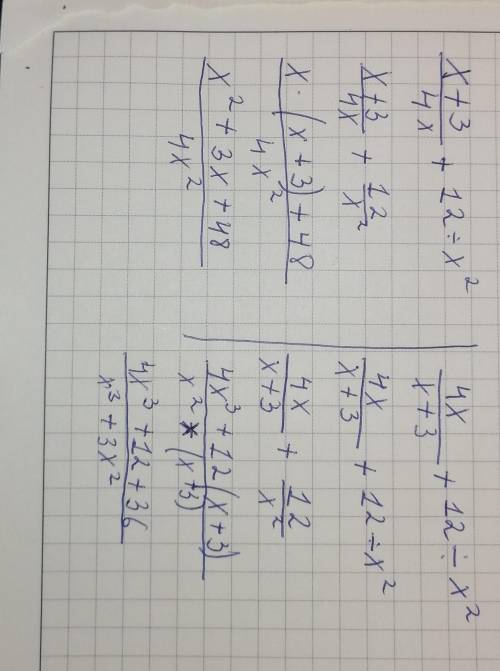 x+3/4x + 12÷x²
x+3/4x + 12/x²
x·(x+3)+48/4x²
x²+3x+48/4x²
4x/x+3 + 12÷x²
4x/x+3 + 12÷x²
4x/x+3 + 12/x²
4x³+12(x+3)/x²*(x+3)
4x³+12+36/x³+3x²